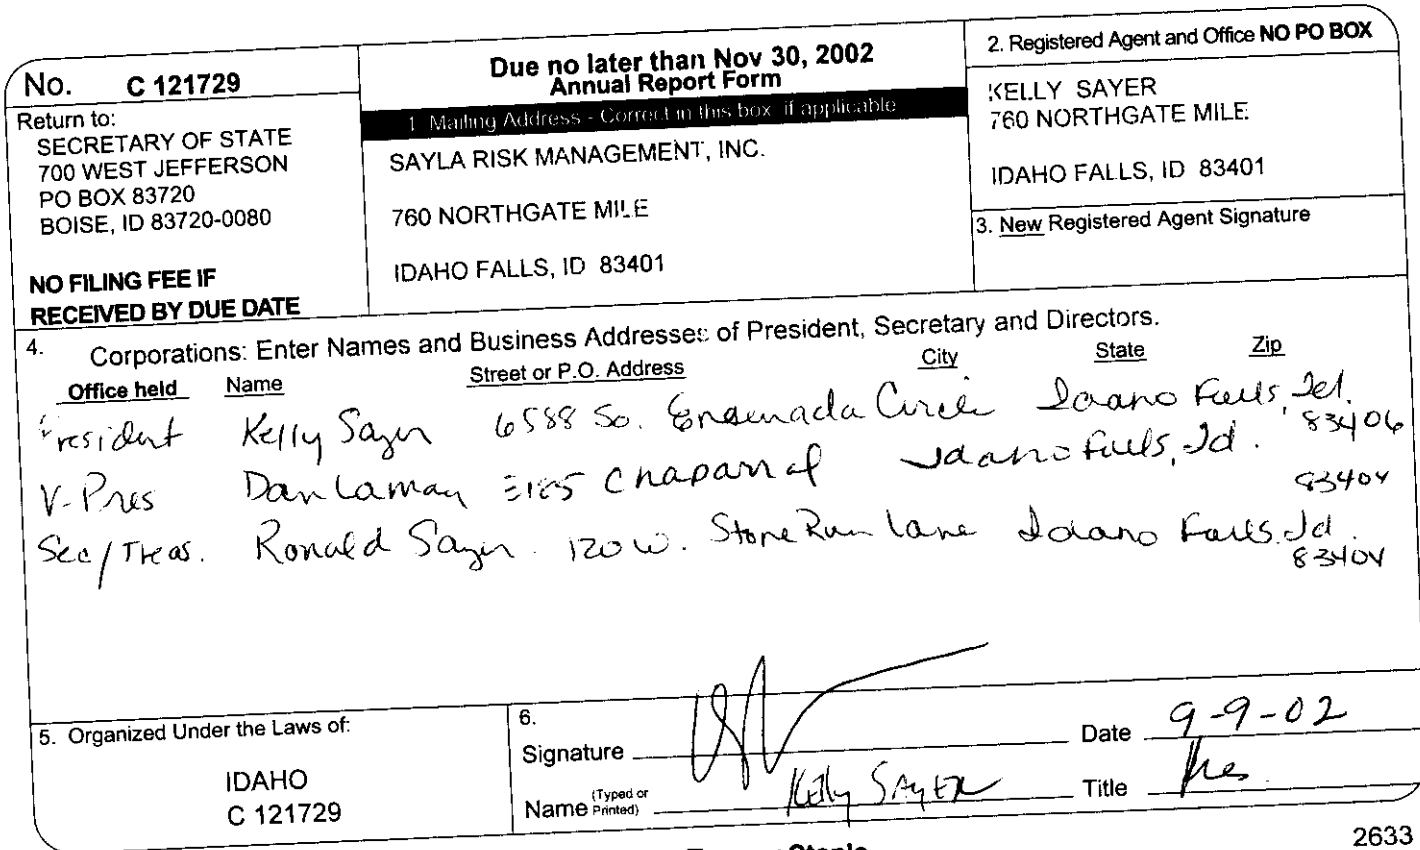 No. C 121729
Return to:
SECRETARY OF STATE
700 WEST JEFFERSON
PO BOX 83720
BOISE, ID 83720-0080
NO FILING FEE IF
RECEIVED BY DUE DATE
Due no later than Nov 30, 2002
Annual Report Form
1. Mailing Address - Correct in this box if applicable
SAYLA RISK MANAGEMENT, INC.
760 NORTHGATE MILE
IDAHO FALLS, ID 83401
2. Registered Agent and Office NO PO BOX
KELLY SAYER
760 NORTHGATE MILE
IDAHO FALLS, ID 83401
3. New Registered Agent Signature
4. Corporations: Enter Names and Business Addresses of President, Secretary and Directors.
Office held Name Street or P.O. Address City State Zip
President Kelly Sayer 6588 So. Ensenada Circle Idaho Falls, Id.
83406
V-Pres Dan Lamay Chaparral Idaho Falls, Id.
83404
Sec/Treas. Ronald Sayer. 120 W. Stone Run Lane Idaho Falls. Id.
83404
5. Organized Under the Laws of:
IDAHO
C 121729
6.
Signature Date 9-9-02
Name (Typed or Printed) Kelly SAYER Title Pres.
2633